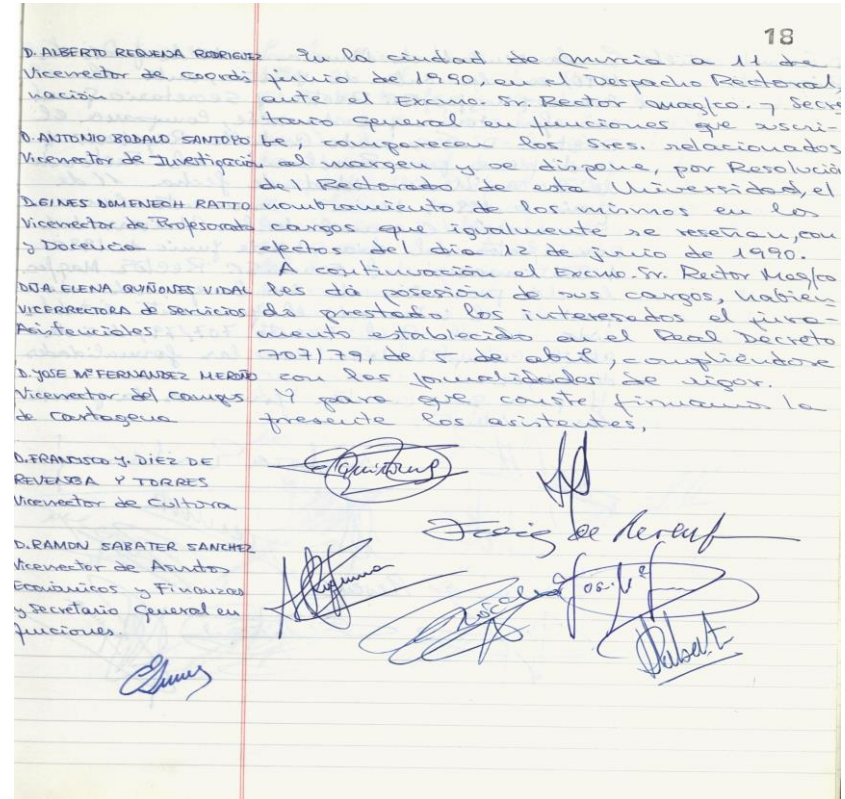 18
D. ALBERTO REQUENA RODRIGUEZ
Vicerrector de Coordi
nación
D. ANTONIO BODALO SANTOYO
Vicerrector de Investigación
D. GINES DOMENECH RATTO
Vicerrector de Profesorado
y Docencia
DÑA ELENA QUIÑONES VIDAL
VICERRECTORA de Servicios
Asistenciales.
D. JOSE Mª FERNANDEZ MEROÑO
Vicerrector del Campus
de Cartagena
D. FRANCISCO J. DIEZ DE
REVENGA Y TORRES
Vicerrector de Cultura
D. RAMON SABATER SANCHEZ
Vicerrector de Asuntos
Económicos y Finanzas
y Secretario General en
funciones.
En la ciudad de Murcia a 11 de
junio de 1990, en el Despacho Rectoral,
ante el Excmo. Sr. Rector Magfco. y Secre
tario General en funciones que suscri-
be, comparecen los Sres. relacionados
al margen y se dispone, por Resolución
del Rectorado de esta Universidad, el
nombramiento de los mismos en los
cargos que igualmente se reseñan, con
efectos del día 12 de junio de 1990.
A continuación el Excmo. Sr. Rector Magfco
les dá posesión de sus cargos, habien
do prestado los interesados el jura-
mento establecido en el Real Decreto
707/79, de 5 de abril, cumpliéndose
con las formalidades de rigor.
Y para que conste firmamos la
presente los asistentes,